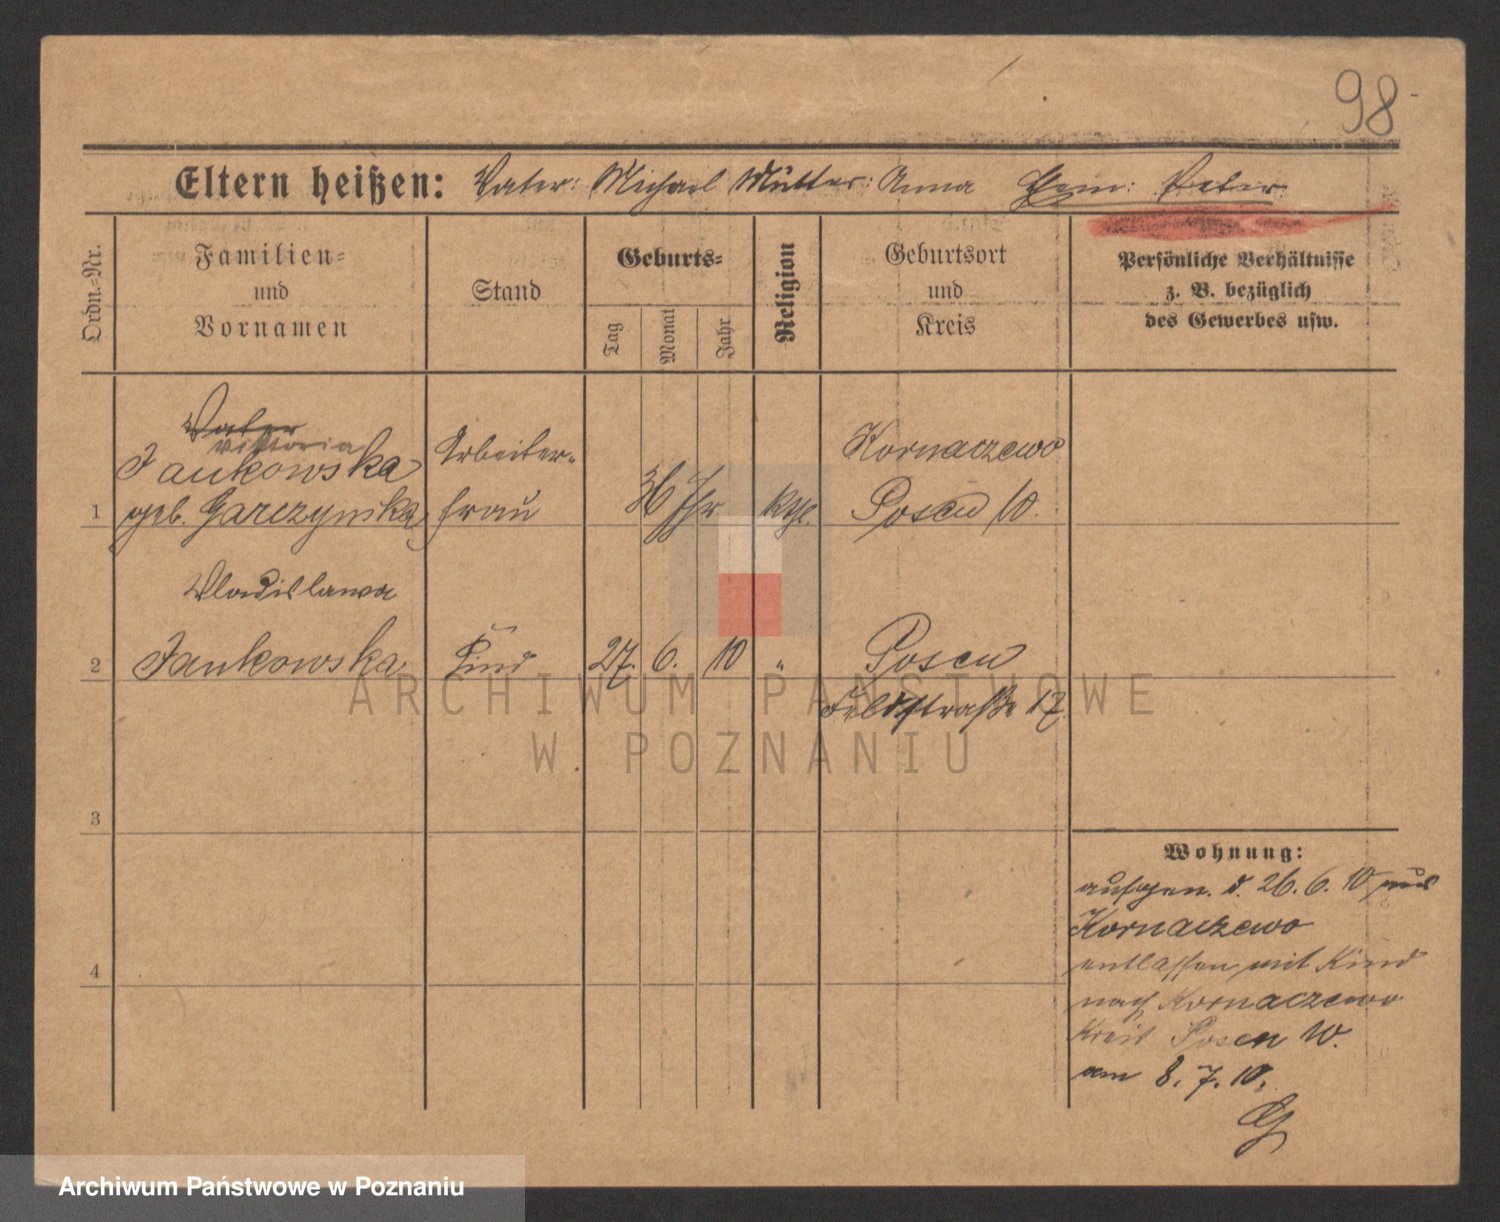 98
Eltern heißen: Vater: Michael Mutter: Anna Peter
Ordn.-Nr.
Familien-
und
Vornamen
Stand
Geburts-
Tag
Monat
Jahr
Religion
Geburtsort
und
Kreis
Persönliche Verhältnisse
z. B. bezüglich
des Gewerbes usw.
Vater
Viktoria
Jankowska
geb. Garczynska
Arbeiter-
frau
36 Jhr
kth.
Kornaczewo
Posen W.
1
Wladislawa
Jankowska
Kind
27. 6. 10
"
Posen
Feldstraße 17.
2
3
4
Wohnung:
aufgen. d. 26. 6. 10 aus
Kornaczewo
entlassen mit Kind
nach Kornaczewo
Kreis Posen W.
am 8. 7. 10.
ARCHIWUM PAŃSTWOWE
W POZNANIU
Archiwum Państwowe w Poznaniu